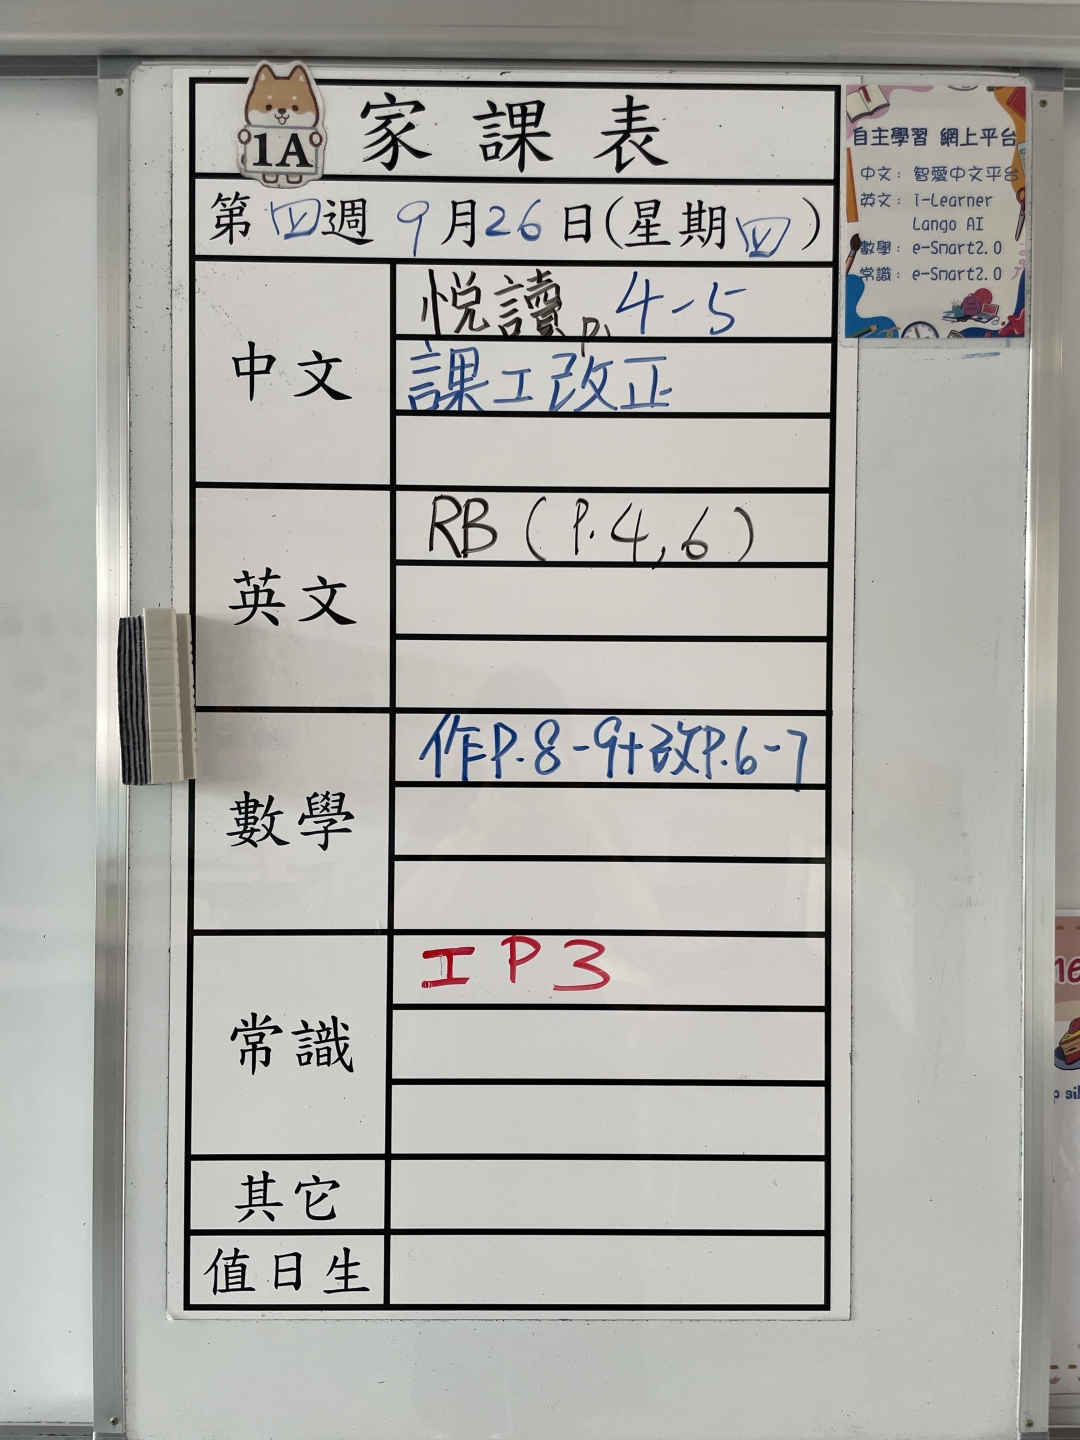 1A 家課表
第四週 9月26日(星期四)
中文
悅讀 p. 4-5
課工改正
英文
RB (P.4,6)
數學
作P.8-9+改P.6-7
常識
工 P 3
其它
值日生
自主學習 網上平台
中文: 智愛中文平台
英文: i-Learner
Lango AI
數學: e-Smart2.0
常識: e-Smart2.0